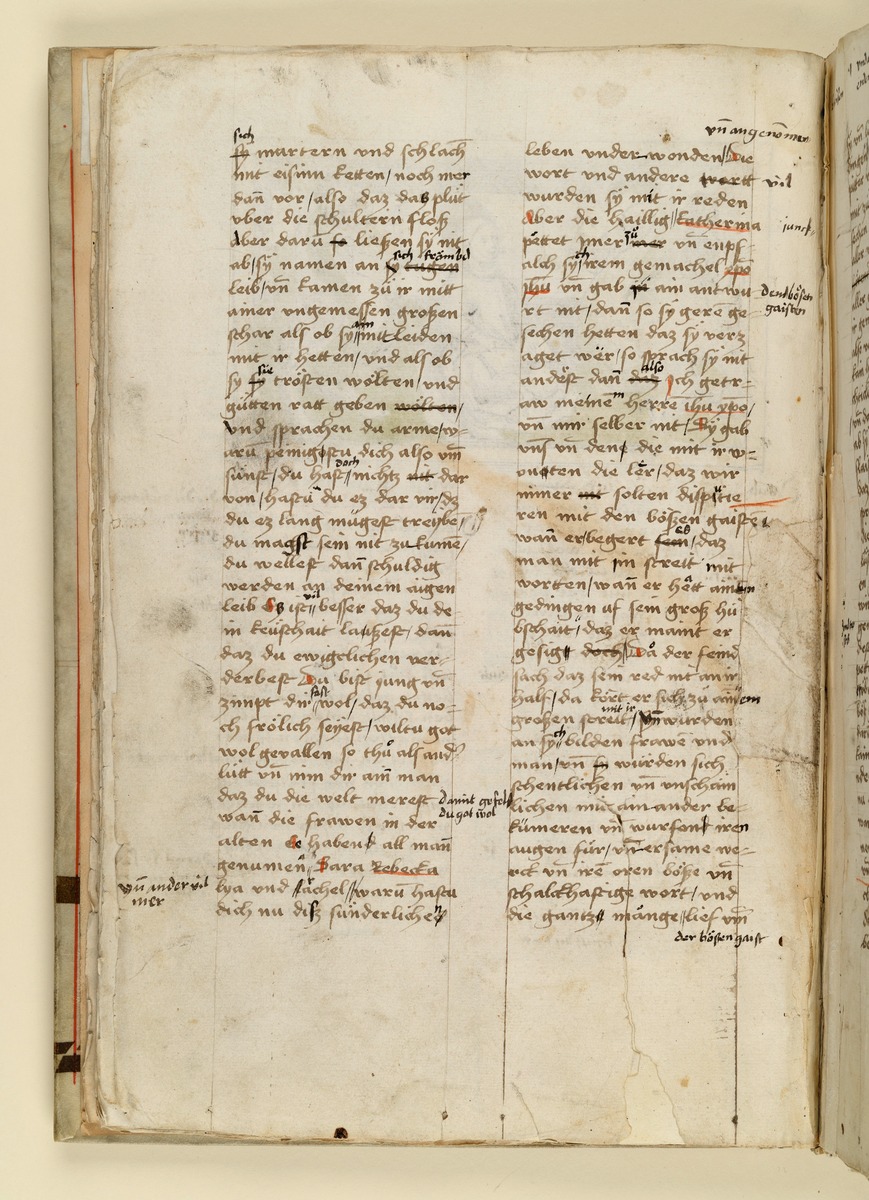 sich
sy martern vnd schlach
mit eisinn ketten/ noch mer
dañ vor/ also daz das plůt
vber die schultern floß
Aber darū so ließen sy nit
ab/ sy namen an sy sich frömbd tugen
leib/ vñ kamen zů ir mitt
ainer vngemessen großen
schar als ob sy ain mitleiden
mit ir hetten/ vnd als ob
sy sy sie trösten wölten/ vnd
gůtten ratt geben wölten/
vnd sprachen du arme/ w-
arū peinigestu dich also vm̄
sunst/ du hast doch nichtz nit dar
von/ hastu du ez dar vir/ dz
du ez lang mügest treyben/
du magst sein nit zukumē/
du wellest dañ schuldig
werden an deinem aigen
leib Es ist vil besser daz du de
in keüschait laußest/ dañ
daz du ewigclichen ver-
derbest Du bist jung vñ
zimpt dir fast wol/ daz du no-
ch frölich seyest/ wiltu got
wol gevallen so thů als and
lütt vñ nim dir ain man
daz du die welt merest Damit gefelst
du got wol
wañ die frawen in der
alten Ee habend all mañ
genumen Sara Rebecka
vñ ander vil
mer
lya und rachel/ warū hastu
dich nu diß sünderlichen
vñ angenommen
leben vnder wonden/ Die
wort vnd andere wortt vil
wurden sy mit ir reden
Aber die haillig katherina junckf
pettet imer zů mer vñ enpf-
alch sich irem gemachel xpō
ihu vñ gab in ain antwu Den bösen
gaisten
rt nit/ dañ so sy gere ge-
sechen hetten daz sy verz
aget wer/ so sprach sy nit
andest dañ daz also Ich getr-
aw meinem herrē ihu xpō/
vñ mir selber nit/ Sy gab
vns vñ den/ die mit ir w-
onten die ler/ daz wir
nimer nit solten disputie
ren mit den bößen gaisten
wañ er begert sein es/ daz
man mit im streit mit
wortten/ wañ er hett ainen
gedingen uf sein groß hü
bschait/ daz er maint er
gesigt doch/ Da der feind
sach daz sein red nit an ir
half/ da kört er sich zů ainem
großen streit/ mit ir vñ wurden
an sych bilden frawē vnd
man/ vñ sy wurden sich
schentlichen vñ vnscham
lichen mit ain ander be-
kümeren vñ wurfent iren
augen für/ vñ ersame we-
rck vñ irē oren böße vñ
schalckhaftige wort/ vnd
die gantz mänge/ lief vm̄
der bösen gaist